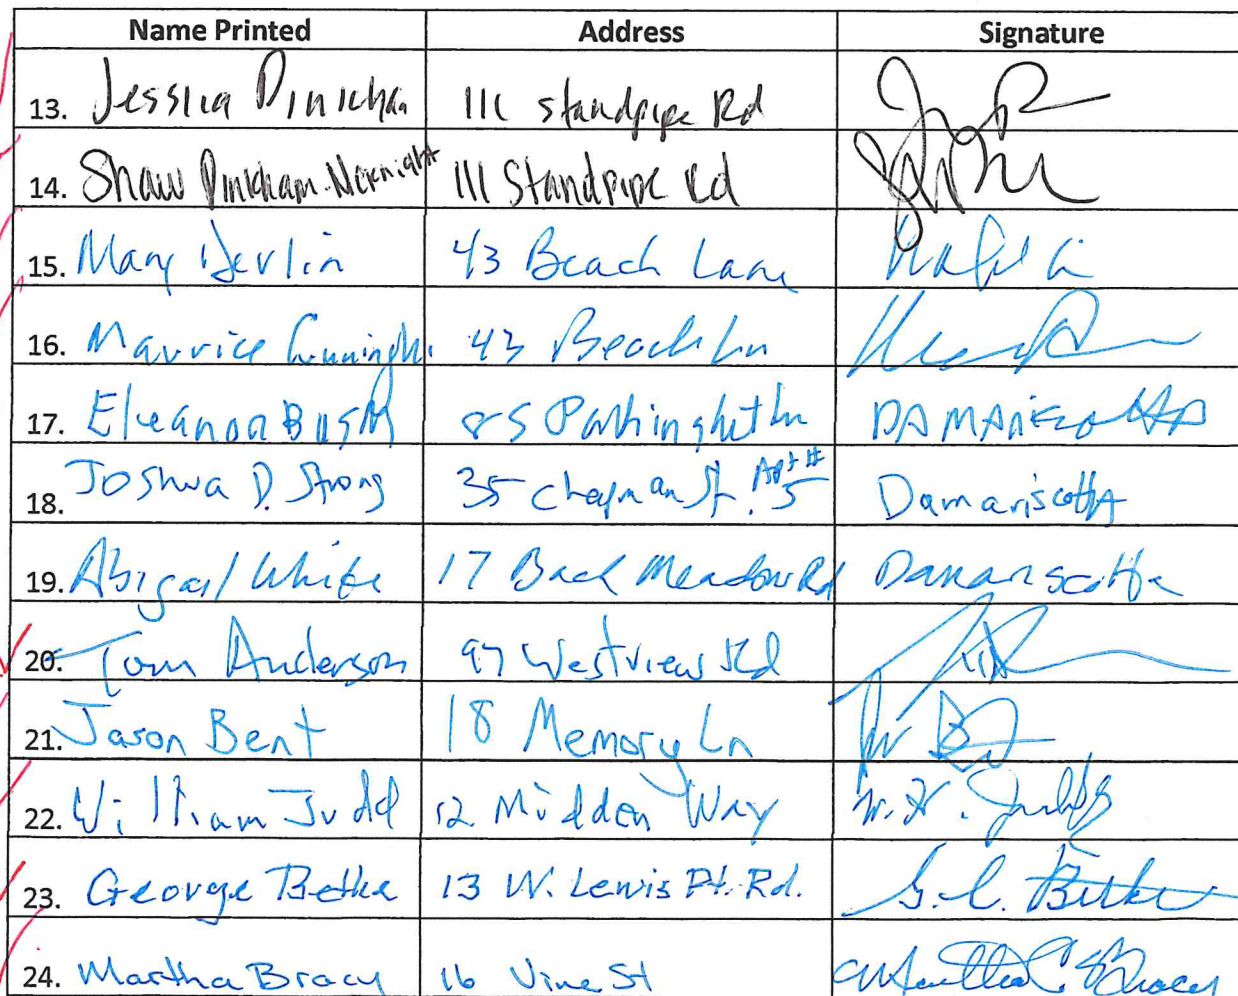 Name Printed Address Signature
13. Jessica Pinkham 111 standpipe Rd
14. Shaw Pinkham-Mcknight 111 Standpipe Rd
15. Mary Devlin 43 Beach Lane
16. Maurice 43 Beach Ln
17. Eleanor DAMARISCOTTA
18. Joshua D. Strong 35 Chapman St. Apt # 5 Damariscotta
19. Abigail White 17 Back Meadow Rd Damariscotta
20. Tom Anderson 97 Westview Rd
21. Jason Bent 18 Memory Ln
22. William Judd 12 Midden Way W. H. Judd
23. George Betke 13 W. Lewis Pt. Rd. G. C. Betke
24. Martha Bracy 16 Vine St Martha C. Bracy